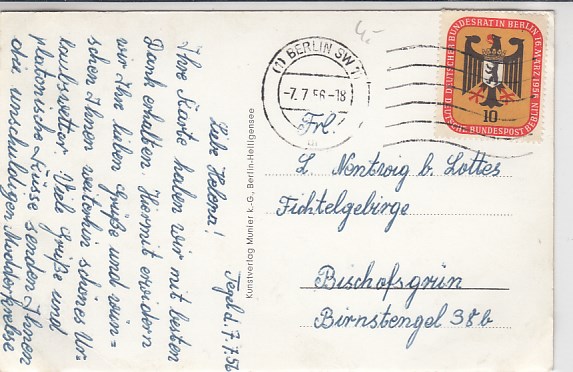 Tegel d. 7.7.56
Liebe Helena!
Ihre Karte haben wir mit besten
Dank erhalten. Hiermit erwidern
wir Ihre lieben Grüße und wün=
schen Ihnen weiterhin schönes Ur=
laubswetter. Viele Grüße und
platonische Küsse senden Ihnen
die unschuldigen
Kunstverlag Munier k.-G., Berlin-Heiligensee
(1) BERLIN SW 11
-7. 7. 56-18
m
DEUTSCHER BUNDESRAT IN BERLIN 16. MÄRZ 1956
10
DEUTSCHE BUNDESPOST BERLIN
Frl.!
L. Nentwig b. Lottes
Fichtelgebirge
Bischofsgrün
Birnstengel 38b